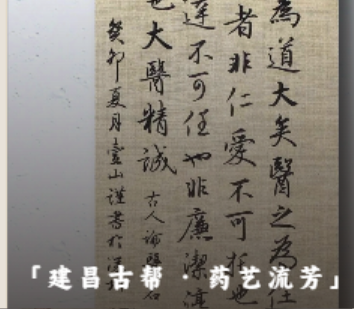 為道大矣醫之為任
者非仁愛不可託也
達不可任也非廉潔淳
也大醫精誠 古人論醫
癸卯夏月 山謹書於
「建昌古帮·药艺流芳」